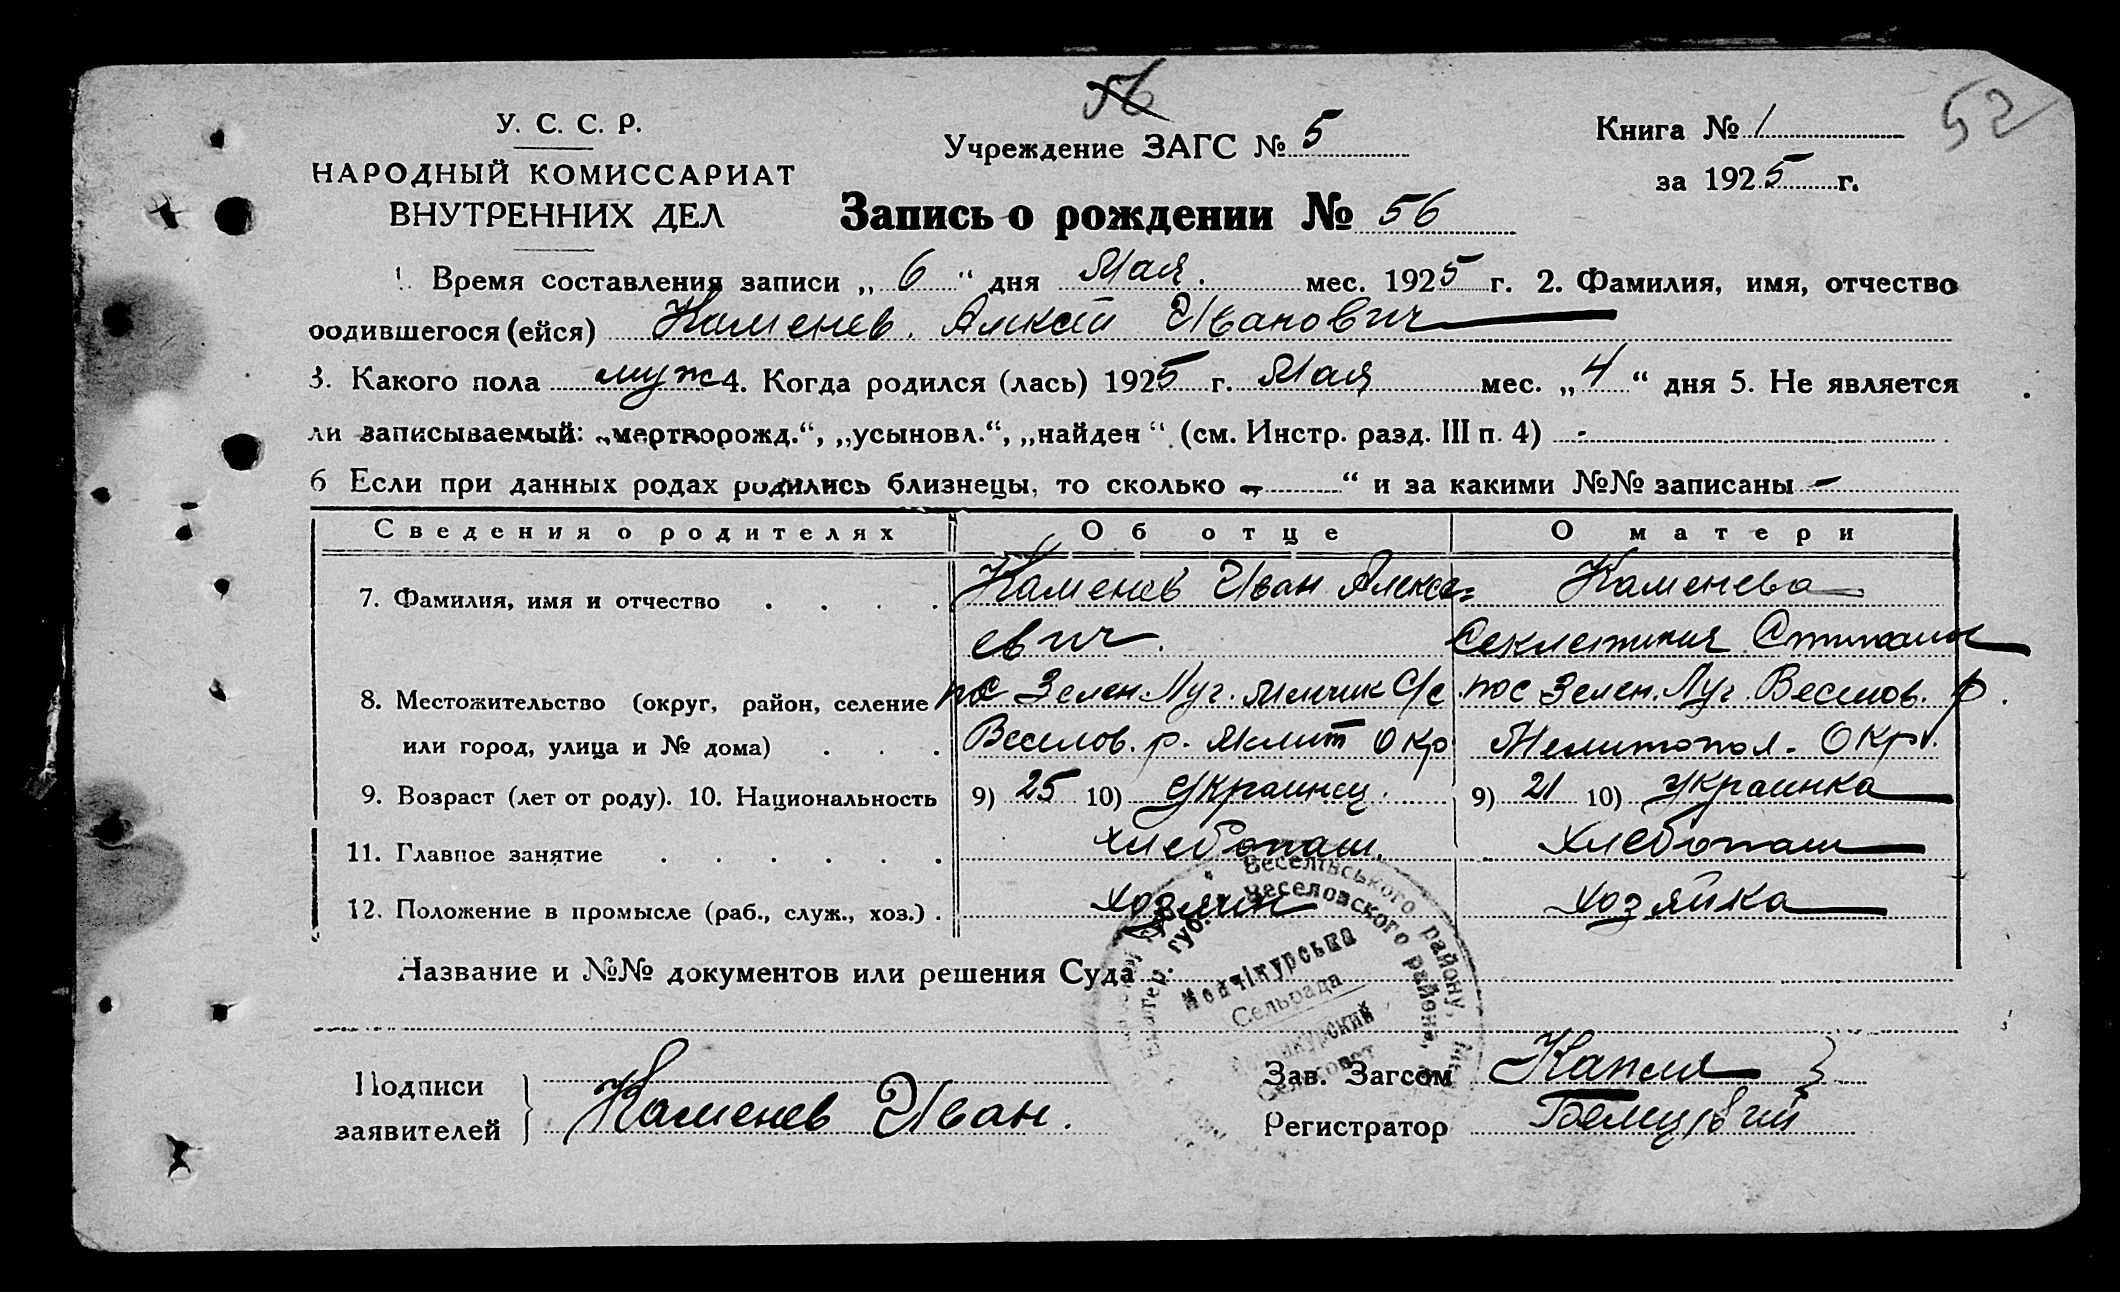 56
52
У. С. С. Р.
НАРОДНЫЙ КОМИССАРИАТ
ВНУТРЕННИХ ДЕЛ
Учреждение ЗАГС № 5
Книга № 1
за 1925 г.
Запись о рождении № 56
1. Время составления записи „ 6 “ дня Мая. мес. 1925 г. 2. Фамилия, имя, отчество
родившегося (ейся) Каменев. Иванович
3. Какого пола муж 4. Когда родился (лась) 1925 г. Мая мес. „ 4 “ дня 5. Не является
ли записываемый: „мертворожд.“, „усыновл.“, „найден“. (см. Инстр. разд. III п. 4) -
6 Если при данных родах родились близнецы, то сколько - “ и за какими №№ записаны -
Сведения о родителях Об отце О матери
7. Фамилия, имя и отчество Каменев Иван Алексе= Каменева
евич.
8. Местожительство (округ, район, селение пос Зелен. Луг. С/с пос Зелен. Луг Веселов. р.
или город, улица и № дома) Веселов. р. Мелит Окр Мелитопол. Окр.
9. Возраст (лет от роду). 10. Национальность 9) 25 10) Украинец. 9) 21 10) Украинка
11. Главное занятие хлебопаш. хлебопаш
12. Положение в промысле (раб., служ., хоз.) хозяин хозяйка
Веселівського району,
губ. Веселовского района,
Сельрада
Название и №№ документов или решения Суда
Подписи
заявителей
Каменев Иван.
Зав. Загсом
Регистратор